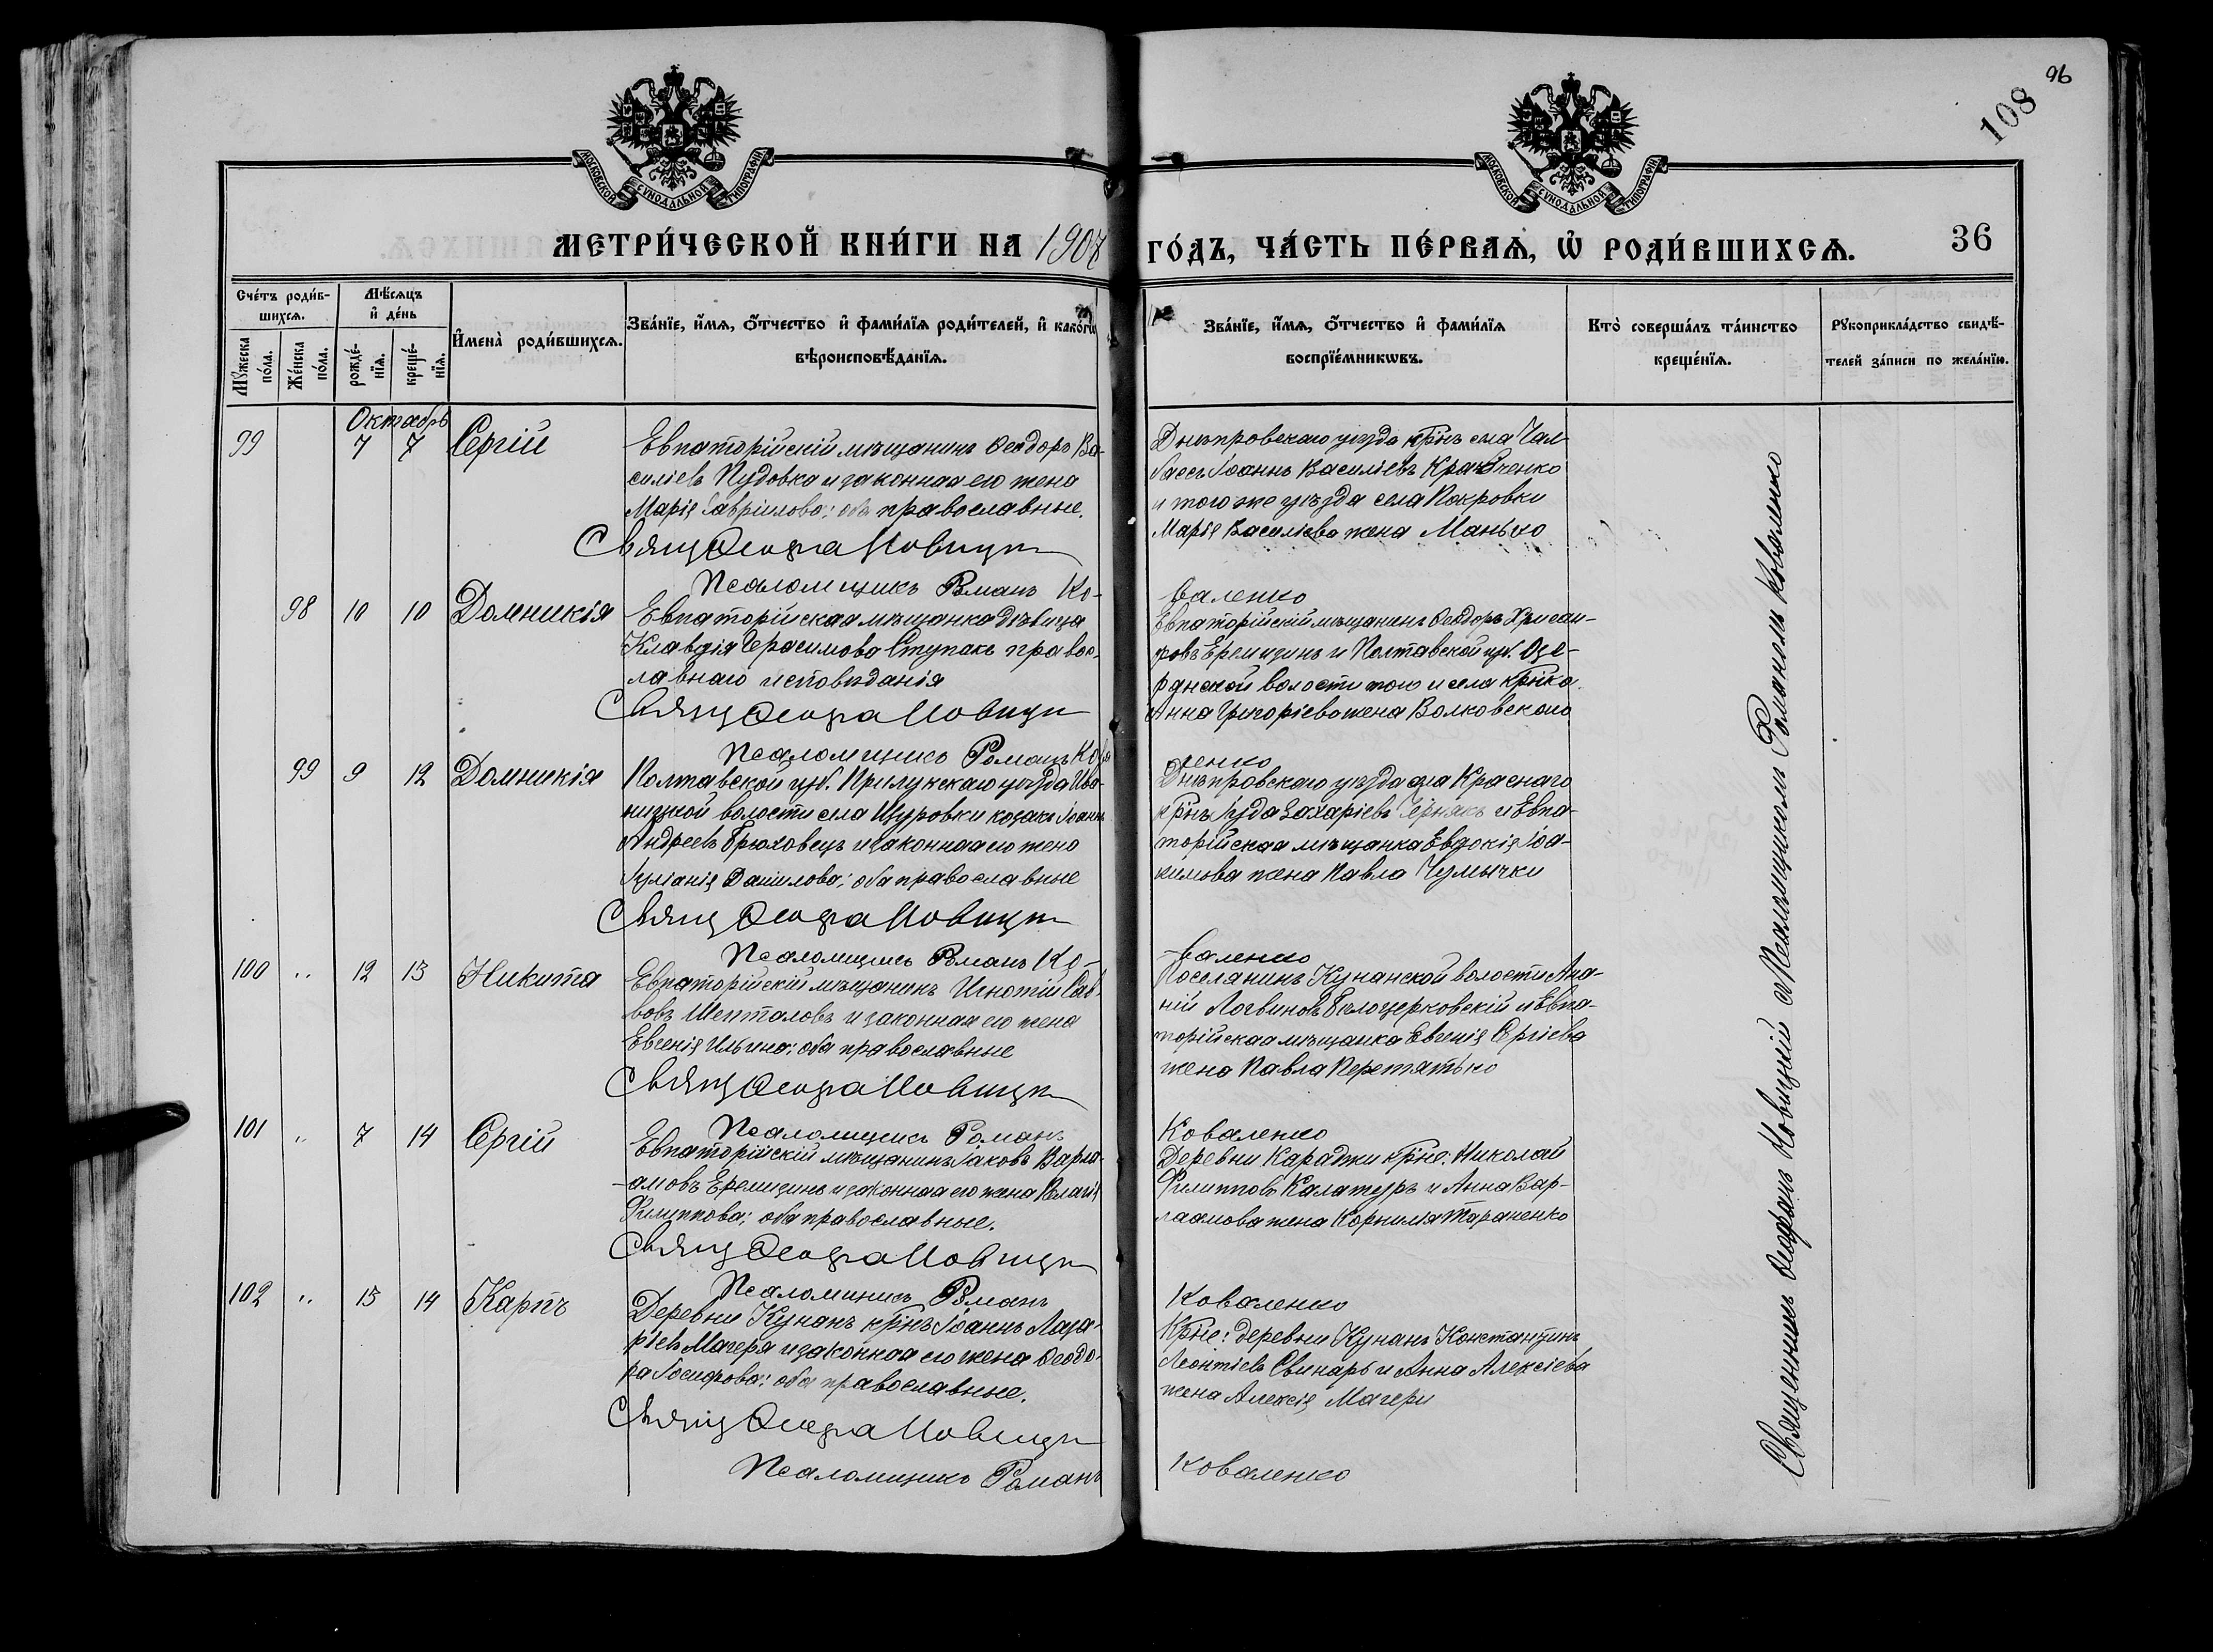 96
108
МОСКОВСКОЙ СѴНОДАЛЬНОЙ ТИПОГРАФІИ
МОСКОВСКОЙ СѴНОДАЛЬНОЙ ТИПОГРАФІИ
МЕТРИ́ЧЕСКОЙ КНИ́ГИ НА 1907 ГО́ДЪ, ЧА́СТЬ ПЕ́РВАѦ, Ѡ҆ РОДИ́ВШИХСѦ. 36
Сче́тъ роди́в-
шихсѧ.
Мꙋжеска
по́ла.
Же́нска
по́ла.
Мѣ́сѧцъ
и҆ де́нь
рожде́-
нїѧ.
креще́-
нїѧ.
И҆мена̀ роди́вшихсѧ.
Зва́нїе, и҆́мѧ, ѻ҆́тчество и҆ фами́лїѧ роди́телей, и҆ како́гѡ
вѣроисповѣ́данїѧ.
Зва́нїе, и҆́мѧ, ѻ҆́тчество и҆ фами́лїѧ
воспрїе́мникѡвъ.
Кто̀ соверша́лъ та́инство
креще́нїѧ.
Рꙋкоприкла́дство свидѣ́-
телей за́писи по жела́нїю.
Октябрь
99 7 7 Сергій
Евпаторійскій мѣщанинъ Ѳеодоръ Ва-
силіевъ Пудовка и законная его жена
Марія Гавріилова; оба православные.
Свящ Ѳеофа Новицк
Псаломщикъ Романъ Ко-
валенко
Днѣпровскаго уѣзда крнъ села Чал-
басъ Іоаннъ Василіевъ Кравченко
и того же уѣзда села Покровки
Марія Василіева жена Манько
98 10 10 Домникія
Евпаторійская мѣщанка дѣвица
Клавдія Герасимова Ступакъ правос-
лавнаго исповѣданія
Свящ Ѳеофа Новицк
Псаломщикъ Романъ Кова
ленко
Евпаторійскій мѣщанинъ Ѳеодоръ Хрисан-
ровъ Еремизинъ и Полтавской губ.
волости того и села
Анна Григоріева жена Волковскаго
99 9 12 Домникія
Полтавской губ. Прилукскаго уѣзда Ива-
ницкой волости села Щуровки козакъ Іоаннъ
Андреевъ Брюховецъ и законная его жена
Іуліанія Данилова; оба православные
Свящ Ѳеофа Новицк
Псаломщикъ Романъ Ко-
валенко
Днѣпровскаго уѣзда села Краснаго
крнъ Іуда Захаріевъ Чернякъ и Евпа-
торійская мѣщанка Евдокія Іоа-
кимова жена Павла Чумычки
100 „ 12 13 Никита
Евпаторійскій мѣщанинъ Игнатій Сав-
вовъ Шепталовъ и законная его жена
Евгенія Ильина; оба православные
Свящ Ѳеофа Новицк
Псаломщикъ Романъ
Коваленко
Поселянинъ Кунанской волости Ана-
ній Логвиновъ Бѣлоцерковскій и Евпа-
торійская мѣщанка Евгенія Сергіева
жена Павла Перетятько
101 „ 7 14 Сергій
Евпаторійскій мѣщанинъ Іаковъ Варла-
амовъ Еремизинъ и законная его жена Пелагія
Филиппова; оба православные.
Свящ Ѳеофа Новицк
Псаломщикъ Романъ
Коваленко
Деревни Караджи крне: Николай
Филипповъ Калатуръ и Анна Вар-
лаамова жена Корнилія Тараненко
102 „ 13 14 Карпъ
Деревни Кунанъ крнъ Іоаннъ Лаза-
ріевъ Магеря и законная его жена Ѳеодо-
ра Іосифова; оба православные.
Свящ Ѳеофа Новицк
Псаломщикъ Романъ
Коваленко
Крне: деревни Кунанъ Константинъ
Леонтіевъ Свинарь и Анна Алексіева
жена Алексія Магери
Священникъ Ѳеофанъ Новицкій съ Псаломщикомъ Романомъ Коваленко